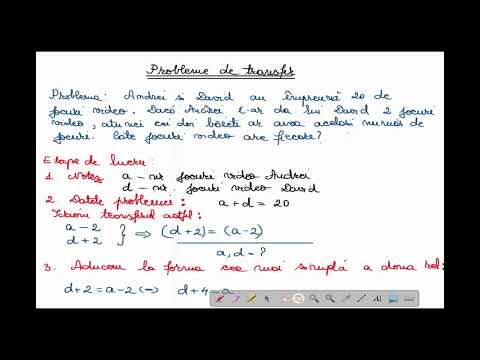 Probleme de transfer
Problema: Andrei si David au împreună 20 de
jocuri video. Dacă Andrei i-ar da lui David 2 jocuri
video, atunci cei doi băieti ar avea acelasi număr de
jocuri. Câte jocuri video are fiecare?
Etape de lucru:
1 Notez a – nr jocuri video Andrei
d – nr. jocuri video David
2 Datele problemei: a + d = 20
transferul astfel:
a – 2
d + 2 } ⇒ (d+2) = (a-2)
a, d = ?
3. Aducem la forma cea mai simplă a doua rel:
d+2 = a-2 (=) d+4 = a